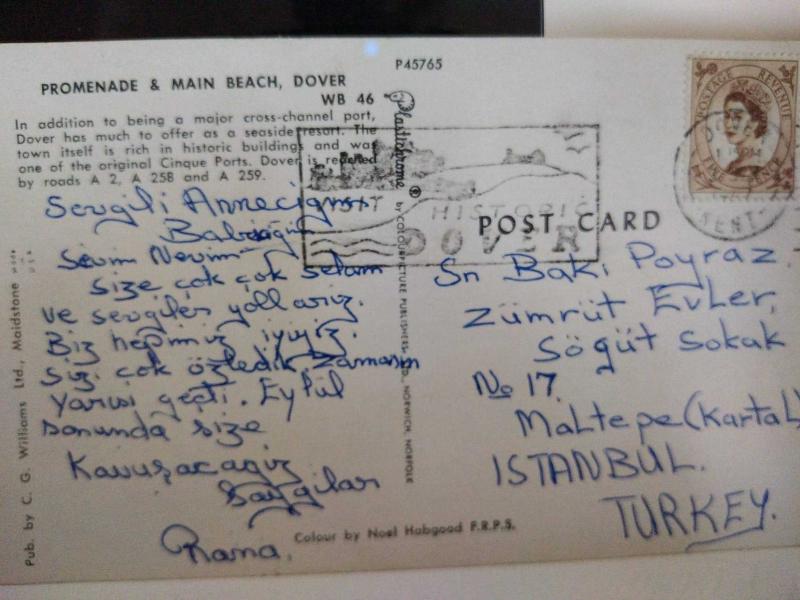 P45765
PROMENADE & MAIN BEACH, DOVER
WB 46
In addition to being a major cross-channel port,
Dover has much to offer as a seaside resort. The
town itself is rich in historic buildings and was
one of the original Cinque Ports. Dover is reached
by roads A 2, A 258 and A 259.
Sevgili Anneciğim
Babacığım
Sevim Nevim
size çok çok selam
ve sevgiler yollarız.
Biz hepimiz iyiyiz.
Sizi çok özledik. Zamanın
yarısı geçti. Eylül
sonunda size
Kavuşacağız
Saygılar
Pub. by C. G. Williams Ltd., Maidstone
Plastichrome ® by COLOURPICTURE PUBLISHERS LTD., NORWICH, NORFOLK
VISIT HISTORIC
DOVER
POSTAGE REVENUE
DOVER
KENT
POST CARD
Sn Baki Poyraz
Zümrüt Evler,
Söğüt Sokak
No 17
Maltepe (Kartal)
ISTANBUL.
TURKEY.
Colour by Noel Habgood F.R.P.S.